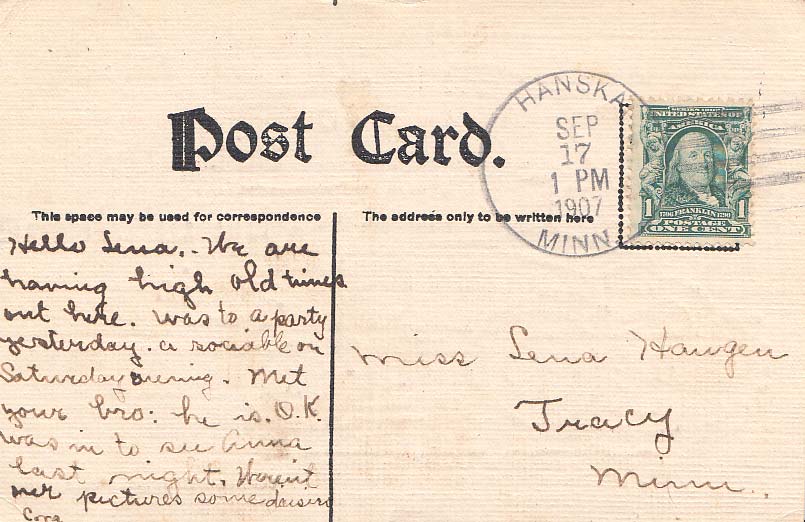 Post Card.
HANSKA
SEP
17
1 PM
1907
MINN.
SERIES 1902
UNITED STATES OF
AMERICA
1 1706 FRANKLIN 1790 1
POSTAGE
ONE CENT
This space may be used for correspondence
The address only to be written here
Hello Lena,. We are
having high old times
out here. was to a party
yesterday. a sociable on
Saturday evening. Met
your bro: he is. O.K.
was in to see Anna
last night. Werent
her pictures some daisies
Cora
Miss Lena Haugen
Tracy
Minn.